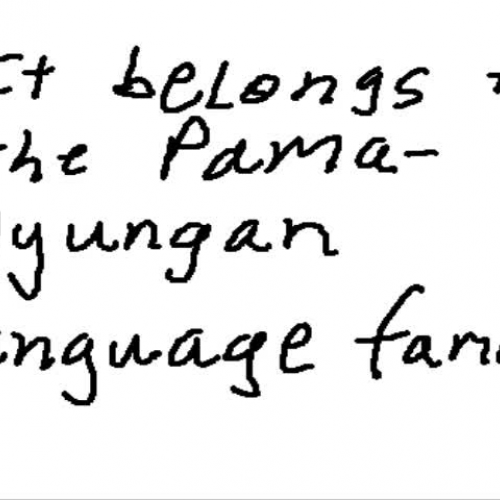 It belongs t
the Pama-
Nyungan
language fam